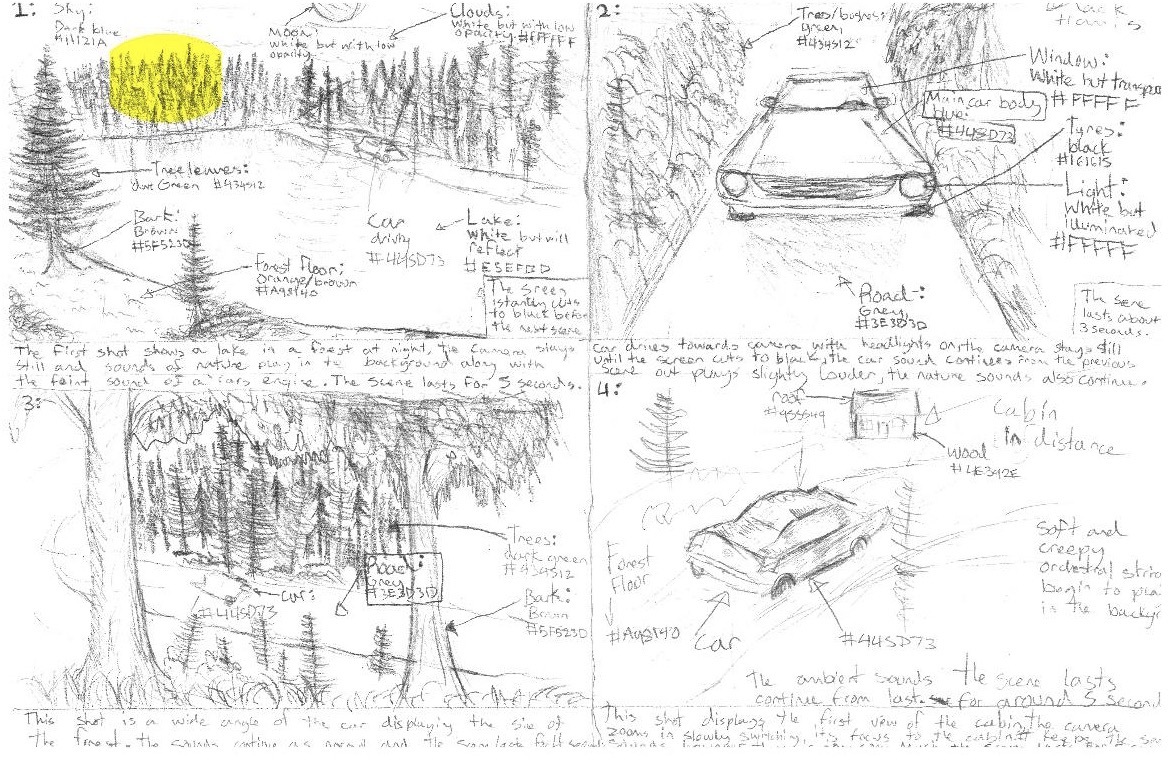 1:
Sky:
Dark blue
#11121A
Moon:
white but with low
opacity
Clouds:
White but with low
opacity #FFFFFF
Treeleaves:
Dark Green #434512
Bark:
Brown
#5F523D
Forest floor:
Orange/brown
#A98140
Car
driving
#445D73
Lake:
White but will
reflect
The Sreen
istantley cuts
to black before
the next scene
The first shot shows a lake in a forest at night, the camera stays
still and sounds of nature play in the background along with
the faint sound of a cars engine. The scene lasts for 5 seconds.
2:
Trees/bushes:
green,
#434512
Black
Window:
White but
#FFFFF
Main car body
blue:
#445D73
Tyres:
black
#1C1C1S
Light:
White but
illuminated
#FFFFF
Road:
Grey,
#3E3D3D
The Scene
lasts about
3 seconds.
car drives towards camera with headlights on the camera stays still
until the screen cuts to black, the car sound continues from the previous
scene out plays slightly louder, the nature sounds also continue.
3:
Trees:
dark green
#434512
Road:
Grey
#3E3D3D
car:
#445D73
Bark:
Brown
#5F523D
This shot is a wide angle of the car displaying the size of
the forest. the sounds continue as normal and the scene lasts for
4:
roof
cabin
in distance
wood
#4E392E
Forest
Floor
#A98140
Car
#445D73
Soft and
creepy
orchestral
begin to
in the
The ambient sounds the scene lasts
continue from last. for around 5 second
This shot displays the first view of the cabin, the camera
zooms in slowly switching its focus to the cabin